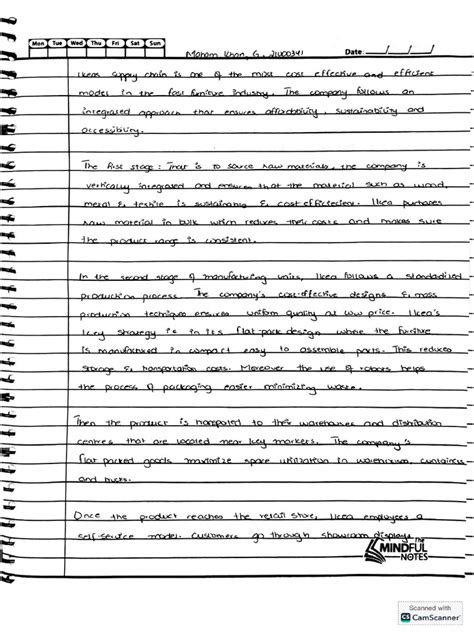 Mon Tue Wed Thu Fri Sat Sun
Maham Khan, G. 21U00341 Date: __/__/__
Ikeas supply chain is one of the most cost effective and efficient
model in the fast furniture industry. The company follows an
integrated approach that ensures affordability, sustainability and
accessibility.
The first stage: That is to source raw materials, the company is
vertically integrated and ensures that the material such as wood,
metal & textile is sustainable & cost efficient. Ikea purchases
raw material in bulk which reduces their costs and makes sure
the product range is consistent.
In the second stage of manufacturing units, Ikea follows a standardized
production process. The company's cost-effective designs & mass
production techniques ensures uniform quality at low price. Ikea's
key strategy is in its flat-pack design where the furnitre
is manufactured in compact easy to assemble parts. This reduced
storage & transportation costs. Moreover the use of robots helps
the process of packaging easier minimizing waste.
Then the product is transported to their warehouses and distribution
centres that are located near key markers. The company's
flat packed goods maximize space utilization in warehouses, containers
and trucks.
Once the product reaches the retail store, Ikea employees a
self-service model. Customers go through showroom displays
THE
MINDFUL
NOTES
Scanned with
CS CamScanner